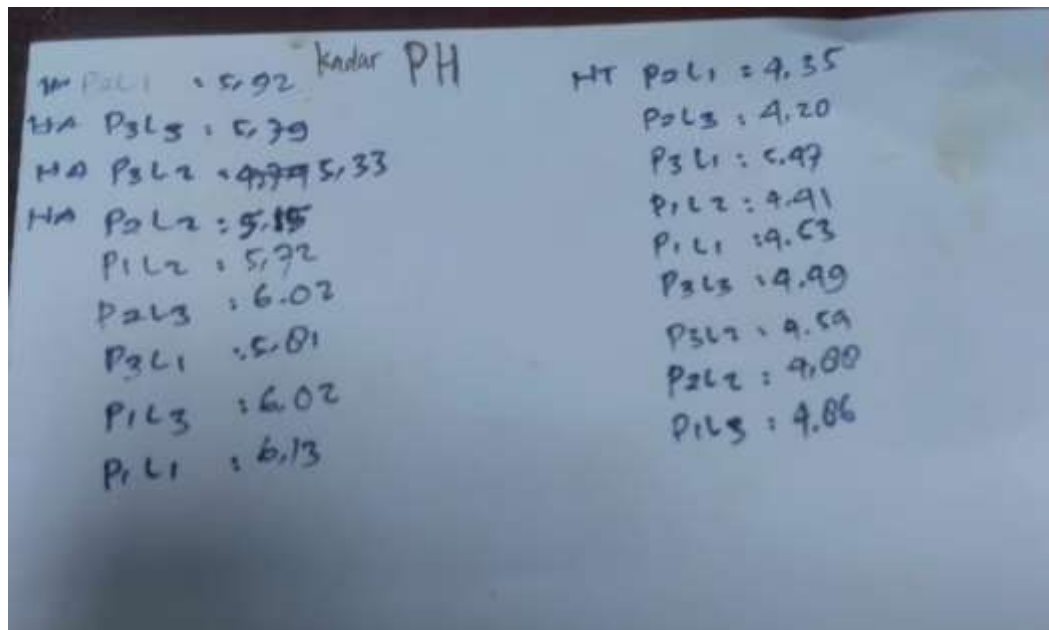 kadar PH
HA P2L1 : 5,92
HA P3L3 : 5,79
HA P3L2 : 5,33
HA P2L2 : 5.15
P1L2 : 5,72
P2L3 : 6.02
P3L1 : 5,81
P1L3 : 6.02
P1L1 : 6,13
HT P2L1 : 4,35
P2L3 : 4,20
P3L1 : 5.47
P1L2 : 4.41
P1L1 : 4.53
P3L3 : 4.49
P3L2 : 4.59
P2L2 : 4,88
P1L3 : 4.86